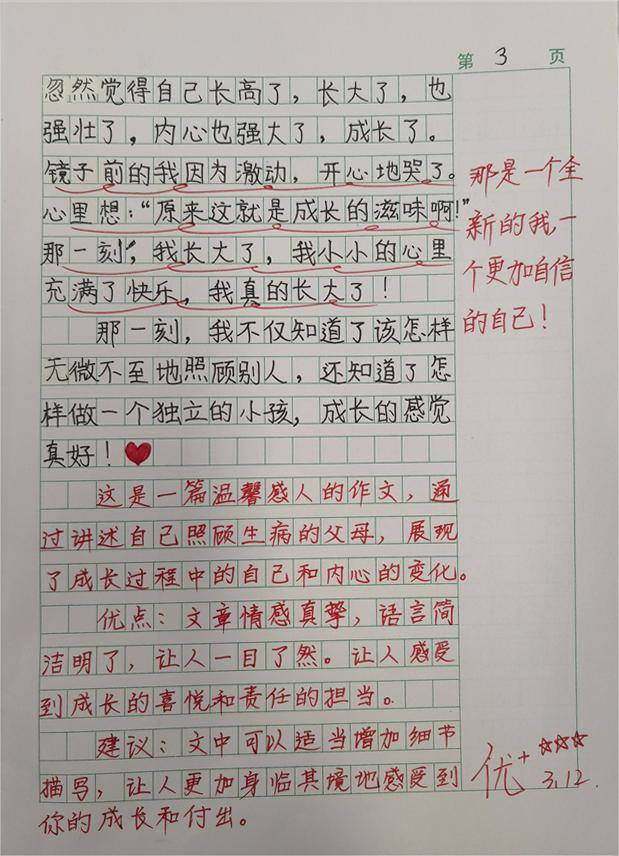 第 3 页
忽然觉得自己长高了，长大了，也
强壮了，内心也强大了，成长了。
镜子前的我因为激动，开心地哭了。
心里想：“原来这就是成长的滋味啊！”
那一刻，我长大了，我小小的心里
充满了快乐，我真的长大了！
那一刻，我不仅知道了该怎样
无微不至地照顾别人，还知道了怎
样做一个独立的小孩，成长的感觉
真好！
那是一个全
新的我，一
个更加自信
的自己！
这是一篇温馨感人的作文，通
过讲述自己照顾生病的父母，展现
了成长过程中的自己和内心的变化。
优点：文章情感真挚，语言简
洁明了，让人一目了然。让人感受
到成长的喜悦和责任的担当。
建议：文中可以适当增加细节
描写，让人更加身临其境地感受到
你的成长和付出。
优+
3.12